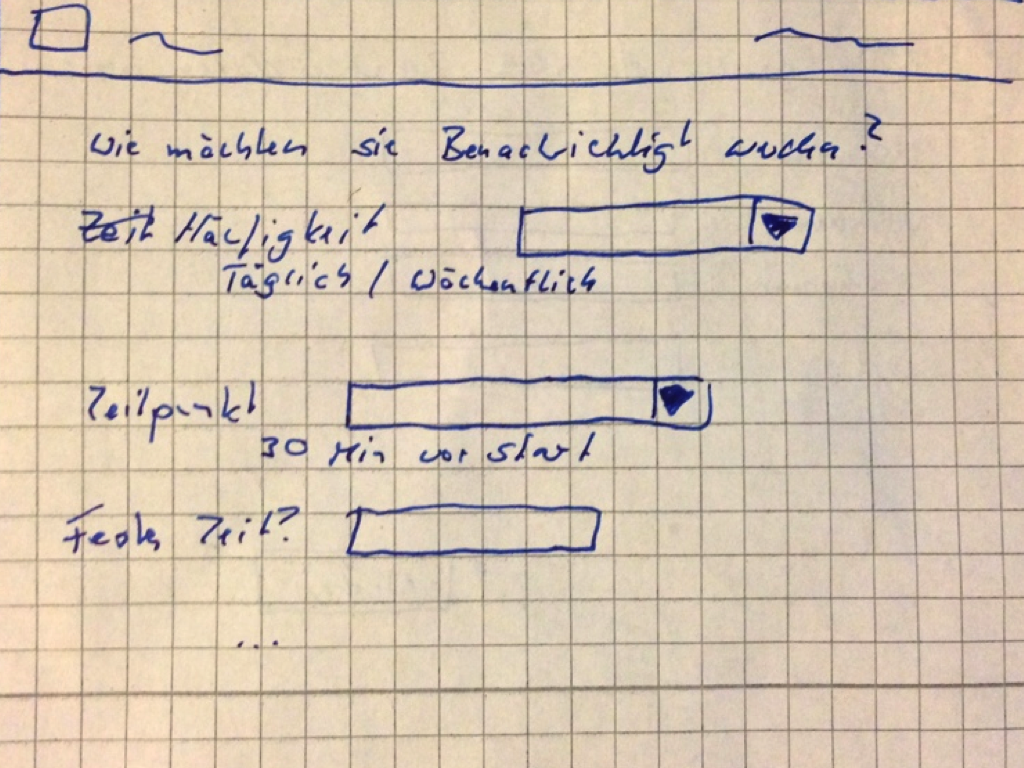 Wie möchten sie Benachrichtigt werden?
Zeit Häufigkeit
Täglich / Wöchentlich
Zeitpunkt
30 Min vor Start
Feste Zeit?
...